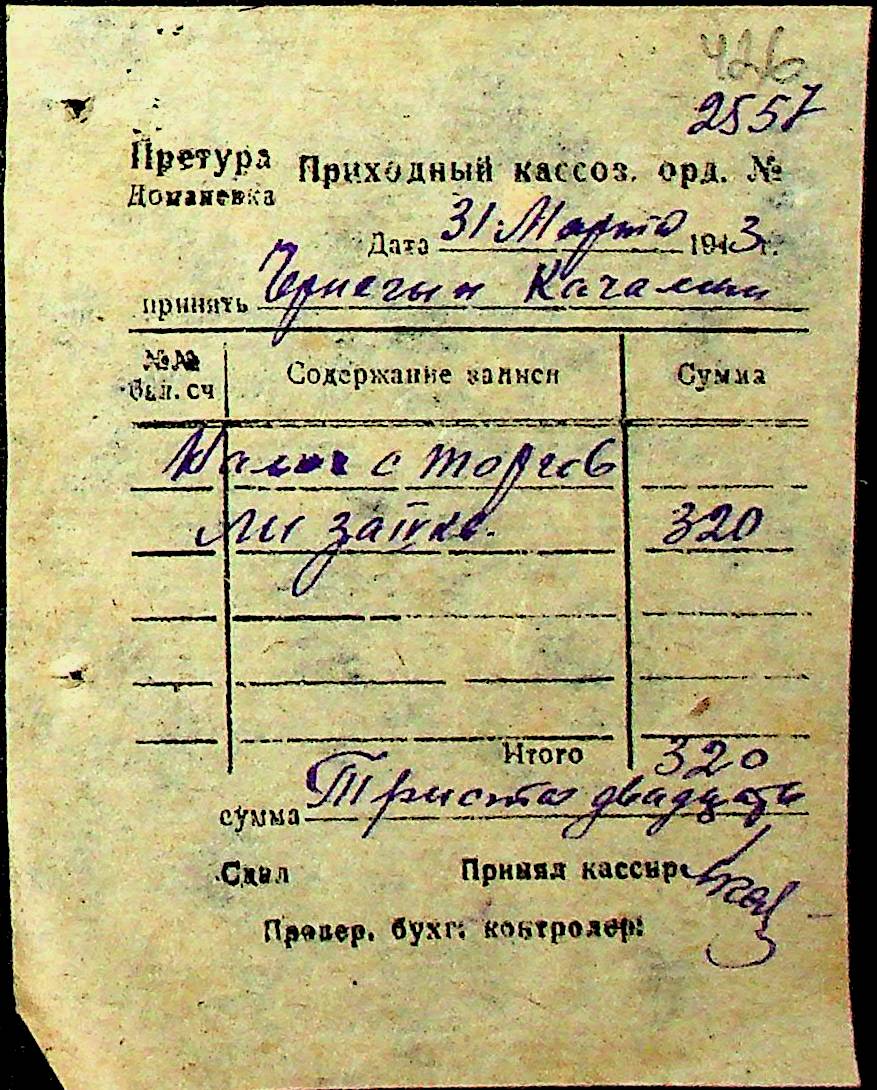 426
2557
Претура Приходный кассов. орд. №
Доманевка
Дата 31 Марта 1943 г.
принять
№№ бал. сч Содержание записи Сумма
с торгов
ли 320
Итого 320
сумма Триста двадцать
Сдал Принял кассир
Провер. бухг: контролер: